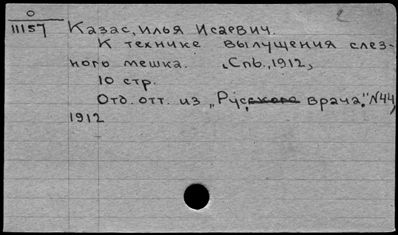 О
11157
Казас, Илья Исаевич.
К технике вылущения слез-
ного мешка. Спб., 1912,
10 стр.
Отд. отт. из „Русского врача". N44,
1912